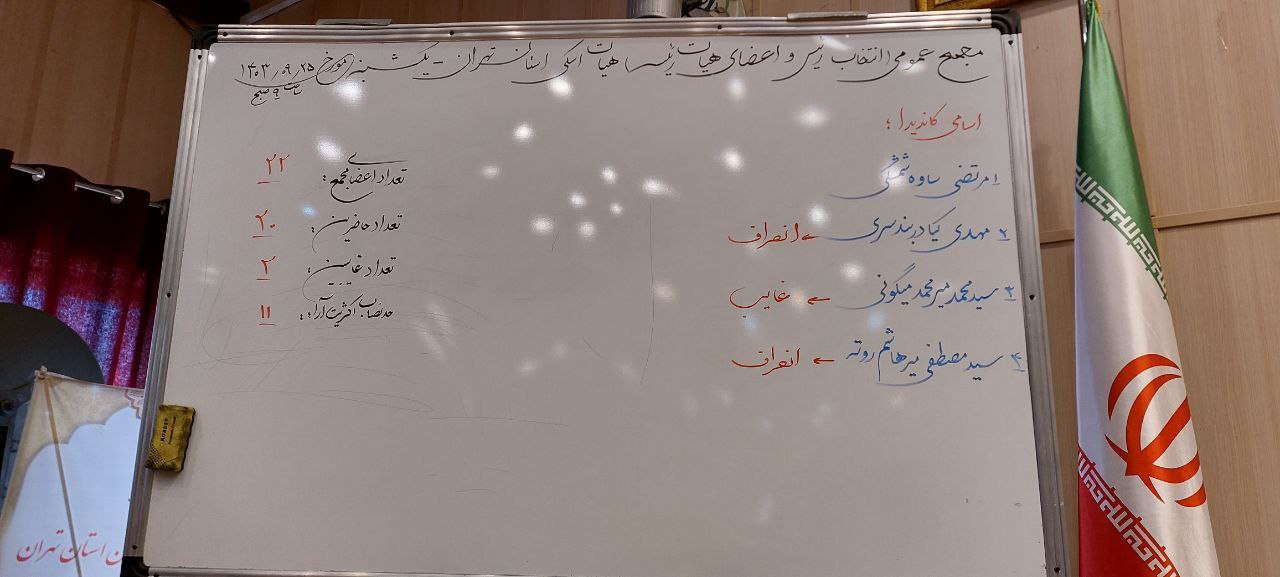 مجمع عمومی انتخاب رئیس و اعضای هیات رئیسه هیات اسکی استان تهران - یکشنبه مورخ ۱۴۰۳/۰۹/۲۵
ساعت ۹ صبح
اسامی کاندیدا :
۱ مرتضی ساوه شمشکی
۲ مهدی کیا دربندسری ← انصراف
۳ سید محمد میرمحمد میگونی ← غایب
۴ سید مصطفی میرهاشم روته ← انصراف
تعداد اعضای مجمع : ۲۲
تعداد حاضرین : ۲۰
تعداد غایبین : ۲
حد نصاب اکثریت آراء : ۱۱
استان تهران